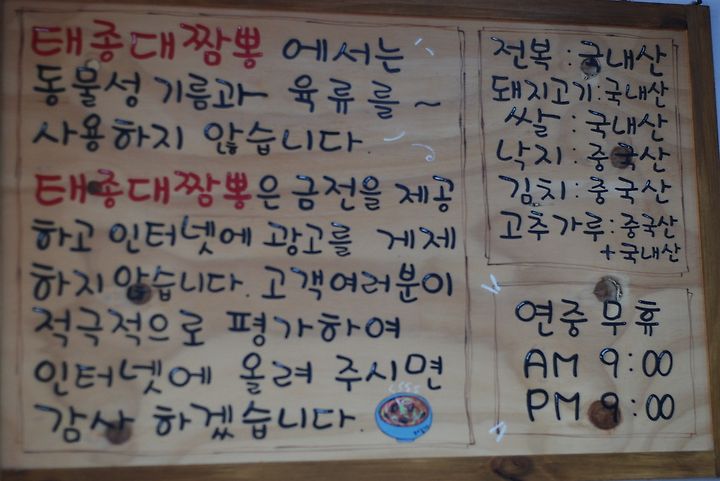 태종대짬뽕 에서는
동물성 기름과 육류를 ~
사용하지 않습니다.
태종대짬뽕은 금전을 제공
하고 인터넷에 광고를 게제
하지않습니다. 고객여러분이
적극적으로 평가하여
인터넷에 올려 주시면
감사 하겠습니다.
전복 : 국내산
돼지고기 : 국내산
쌀 : 국내산
낙지 : 중국산
김치 : 중국산
고추가루 : 중국산
+국내산
연중무휴
AM 9:00
PM 9:00